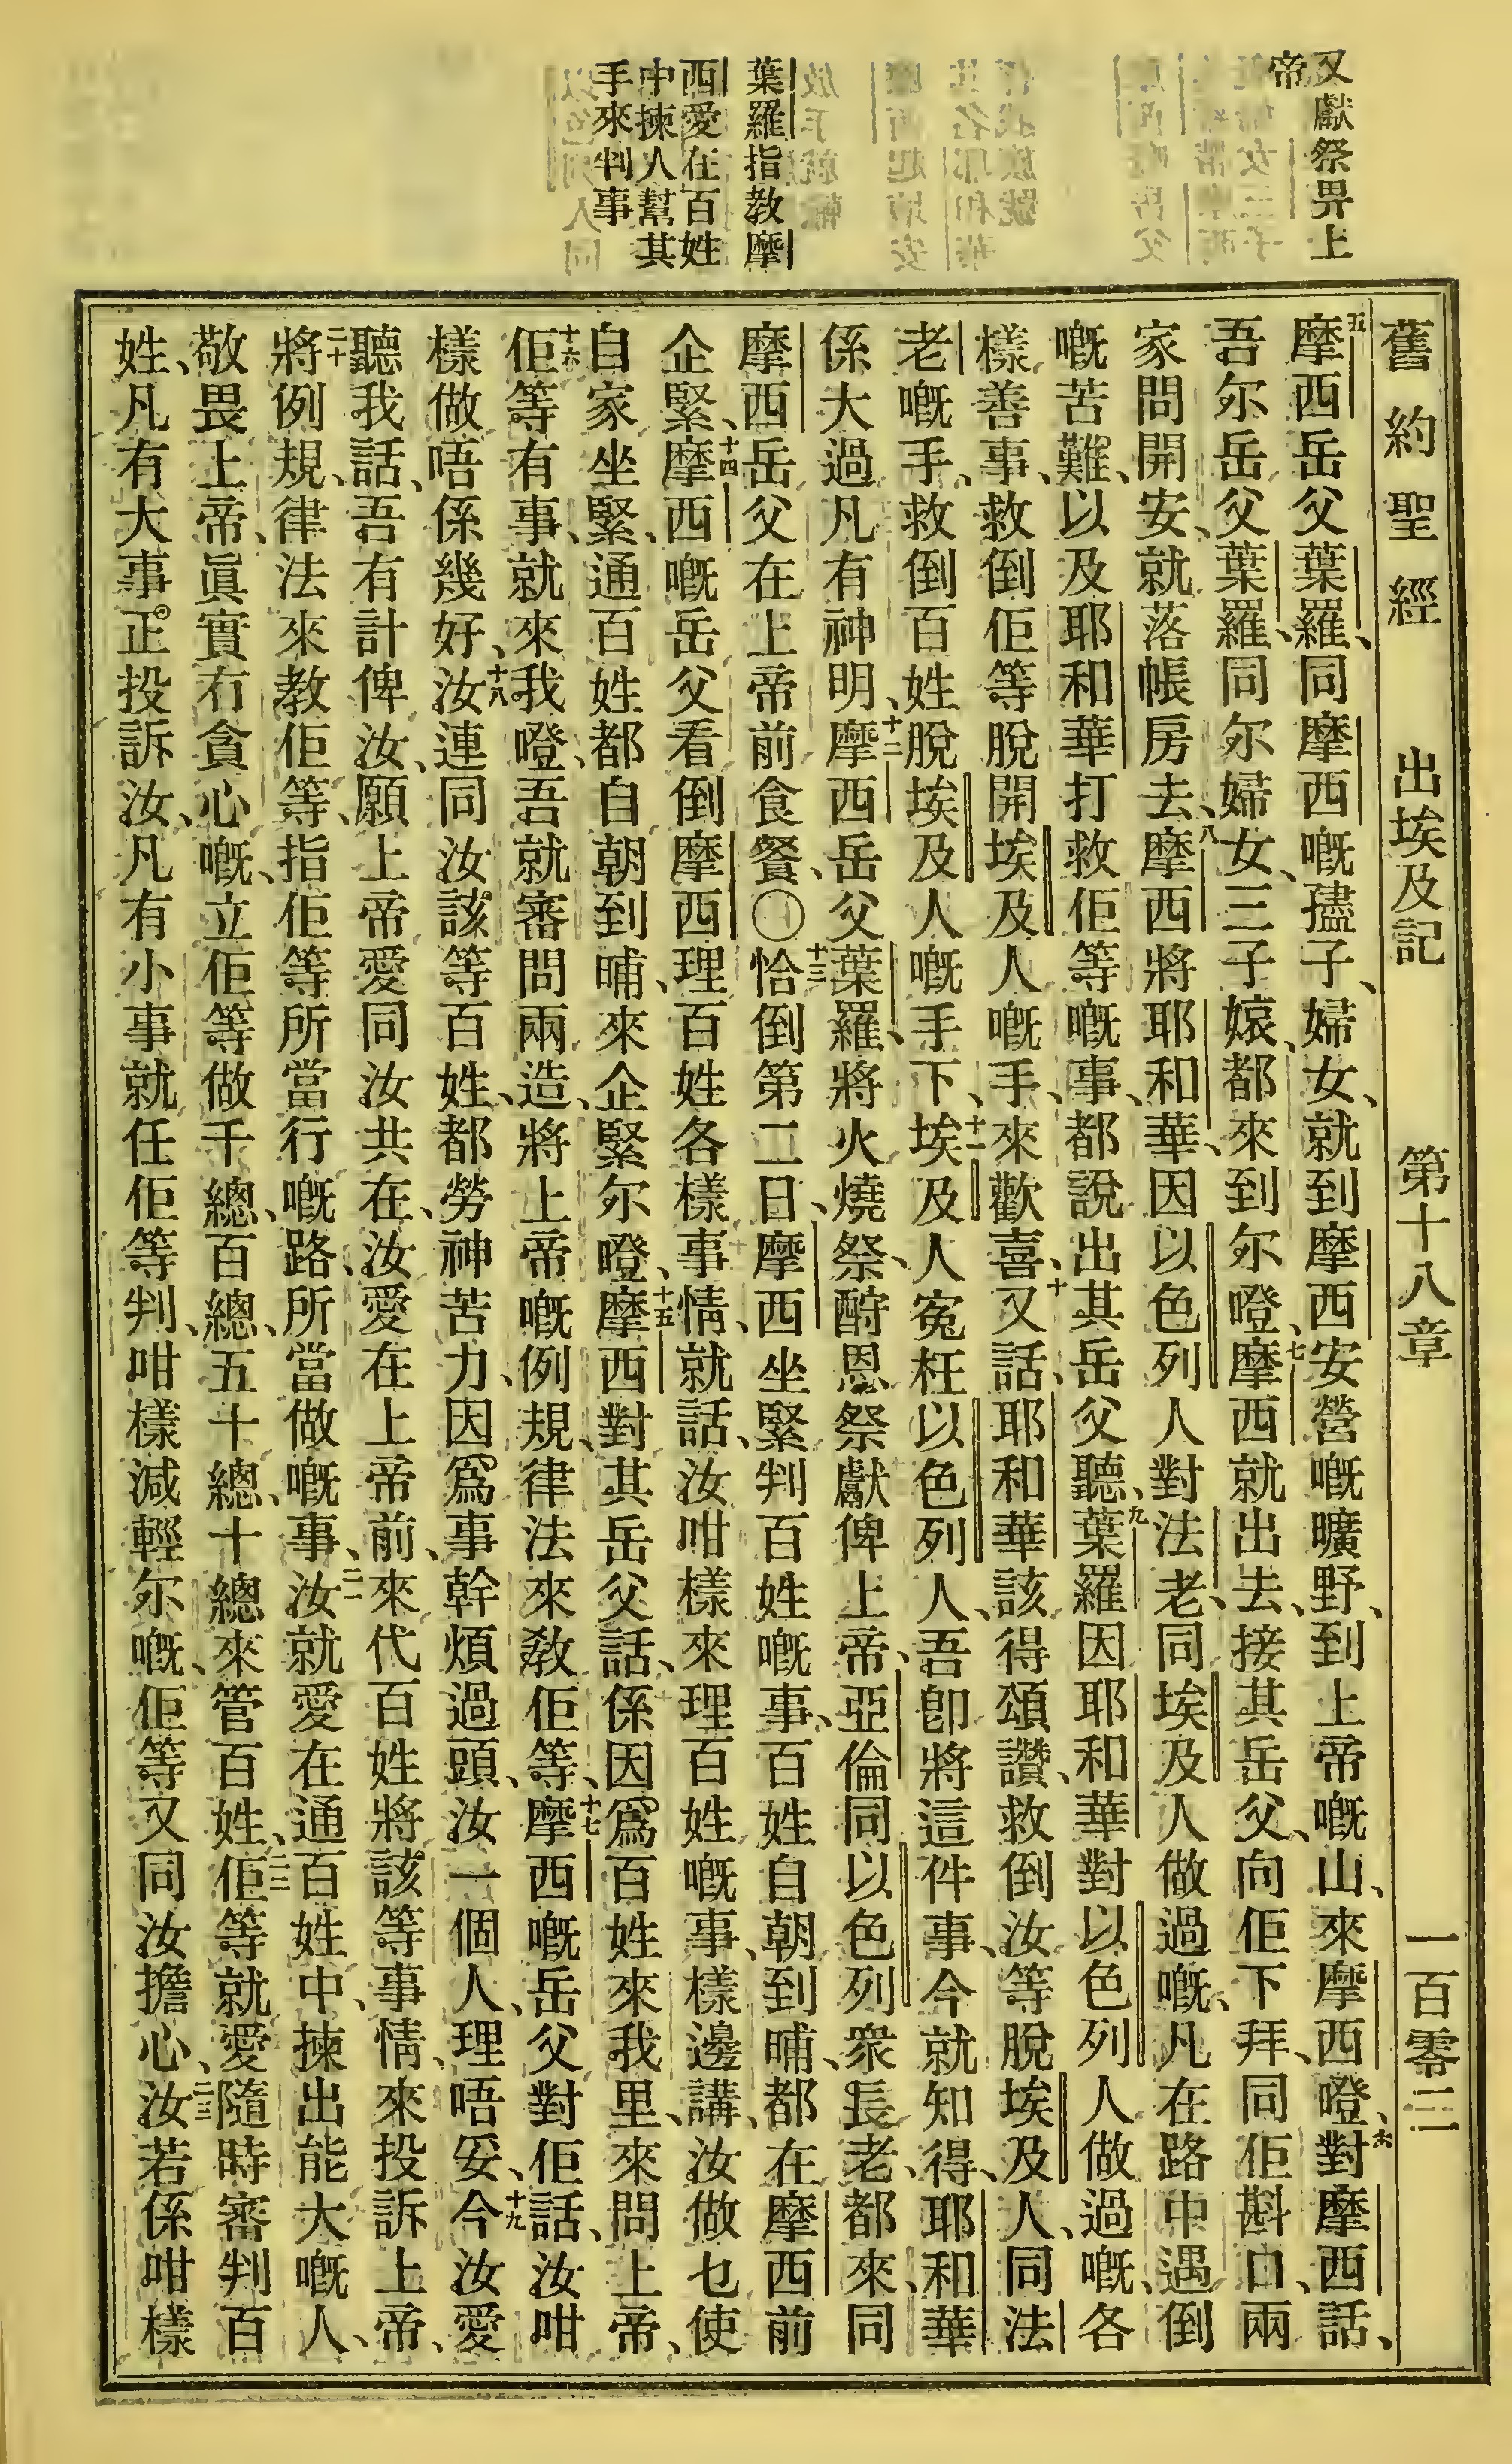 又獻祭畀上
帝
葉羅指教摩
西愛在百姓
中揀人幫其
手來判事
舊約聖經 出埃及記 第十八章 一百零二
五摩西岳父葉羅、同摩西嘅孻子、婦女、就到摩西安營嘅曠野、到上帝嘅山、來摩西嶝、六對摩西話、
吾尔岳父葉羅、同尔婦女、三子嬝、都來到尔嶝、七摩西就出去、接其岳父、向佢下拜、同佢斟口、兩
家問開安、就落帳房去、八摩西將耶和華、因以色列人對法老、同埃及人做過嘅、凡在路中遇倒
嘅苦難、以及耶和華打救佢等嘅事、都說出其岳父聽、九葉羅因耶和華對以色列人做過嘅、各
樣善事、救倒佢等脫開埃及人嘅手、來歡喜、十又話、耶和華該得頌讚、救倒汝等脫埃及人、同法
老嘅手、救倒百姓脫埃及人嘅手下、十一埃及人寃枉以色列人、吾卽將這件事、今就知得、耶和華
係大過凡有神明、十二摩西岳父葉羅、將火燒祭、酧恩祭獻俾上帝、亞倫同以色列衆長老、都來、同
摩西岳父在上帝前食餐、〇十三恰倒第二日、摩西坐緊判百姓嘅事、百姓自朝到晡、都在摩西前
企緊、十四摩西嘅岳父看倒摩西理百姓各樣事情、就話、汝咁樣來理百姓嘅事、樣邊講、汝做乜使
自家坐緊、通百姓都自朝到晡、來企緊尔嶝、十五摩西對其岳父話、係因爲百姓來我里、來問上帝、
十六佢等有事、就來我嶝、吾就審問兩造、將上帝嘅例規、律法來敎佢等、十七摩西嘅岳父對佢話、汝咁
樣做唔係幾好、十八汝連同汝該等百姓、都勞神苦力、因爲事幹煩過頭、汝一個人、理唔妥、十九今汝愛
聽我話、吾有計俾汝、願上帝愛同汝共在、汝愛在上帝前、來代百姓將該等事情、來投訴上帝、
二十將例規、律法來教佢等、指佢等所當行嘅路、所當做嘅事、二一汝就愛在通百姓中、揀出能大嘅人、
敬畏上帝、眞實冇貪心嘅、立佢等做千總、百總、五十總、十總來管百姓、二二佢等就愛隨時審判百
姓、凡有大事正投訴汝、凡有小事就任佢等判、咁樣減輕尔嘅、佢等又同汝擔心、二三汝若係咁樣